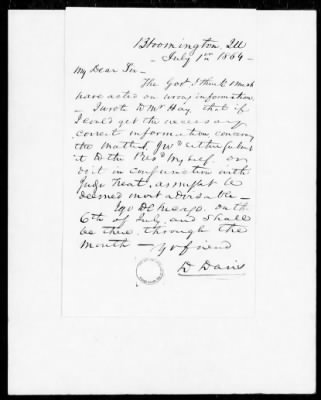 Bloomington, Ill
July 1st 1864
My Dear Sir—
The Govt I think must
have acted on wrong information
— I wrote to Mr Hay, that if
I could get the necessary
correct information concerng
the matter, I wd either submit
it to the Presdt myself, or
do it in conjunction with
Judge Treat, as might be
deemed most advisable—
I go to Chicago on th
6th of July and shall
be there through the
month — Yr friend
D Davis